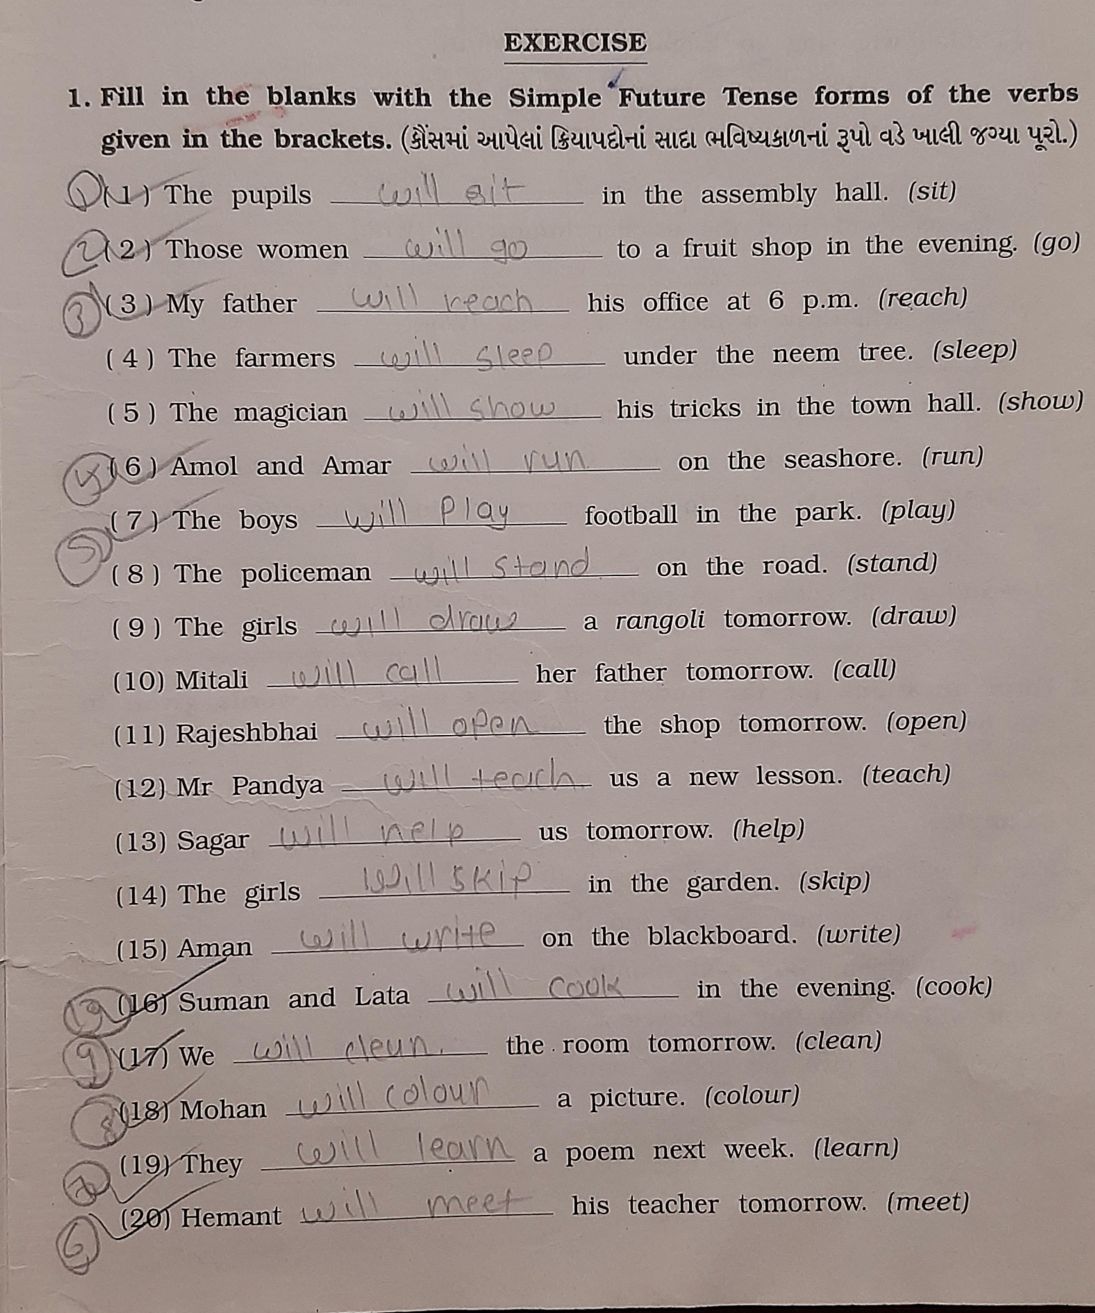 EXERCISE
1. Fill in the blanks with the Simple Future Tense forms of the verbs
given in the brackets. (કૌંસમાં આપેલાં ક્રિયાપદોનાં સાદા ભવિષ્યકાળનાં રૂપો વડે ખાલી જગ્યા પૂરો.)
1 (1) The pupils will sit in the assembly hall. (sit)
2 (2) Those women will go to a fruit shop in the evening. (go)
3 (3) My father will reach his office at 6 p.m. (reach)
(4) The farmers will sleep under the neem tree. (sleep)
(5) The magician will show his tricks in the town hall. (show)
4 (6) Amol and Amar will run on the seashore. (run)
5 (7) The boys will play football in the park. (play)
(8) The policeman will stand on the road. (stand)
(9) The girls will draw a rangoli tomorrow. (draw)
(10) Mitali will call her father tomorrow. (call)
(11) Rajeshbhai will open the shop tomorrow. (open)
(12) Mr Pandya will teach us a new lesson. (teach)
(13) Sagar will help us tomorrow. (help)
(14) The girls will skip in the garden. (skip)
(15) Aman will write on the blackboard. (write)
(16) Suman and Lata will cook in the evening. (cook)
9 (17) We will clean. the room tomorrow. (clean)
8 (18) Mohan will colour a picture. (colour)
7 (19) They will learn a poem next week. (learn)
6 (20) Hemant will meet his teacher tomorrow. (meet)